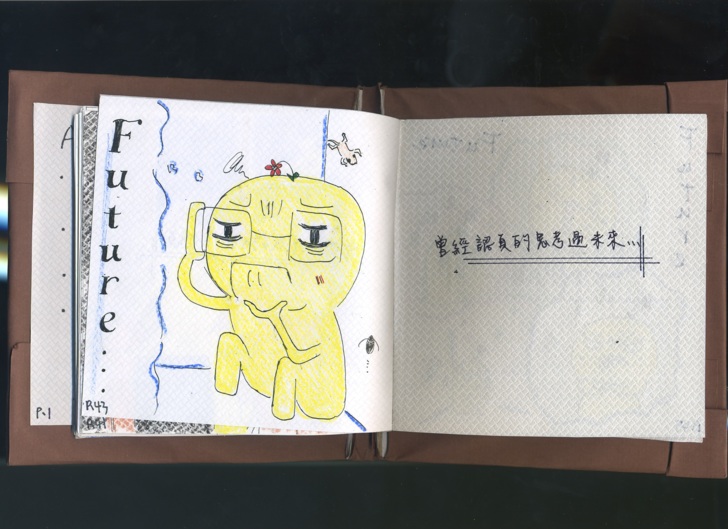 Future...
P.43
P.1
曾經認真的思考過未來...